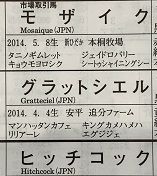 市場取引馬
モザイク
Mosaique (JPN)
2014. 5. 8生 新ひだか 本桐牧場
タニノギムレット ジェイドロバリー
キョウモヨロシク シートゥシャイニングシー
グラットシエル
Gratteciel (JPN)
2014. 4. 4生 安平 追分ファーム
マンハッタンカフェ キングカメハメハ
リリアーレ エグジジェ
ヒッチコック
Hitchcock (JPN)